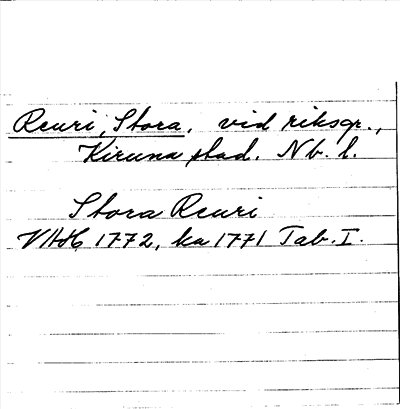 Reuri, Stora, vid riksgr.,
Kiruna stad. Nb. l.
Stora Reuri
VAH, 1772, ka 1771 Tab. I.